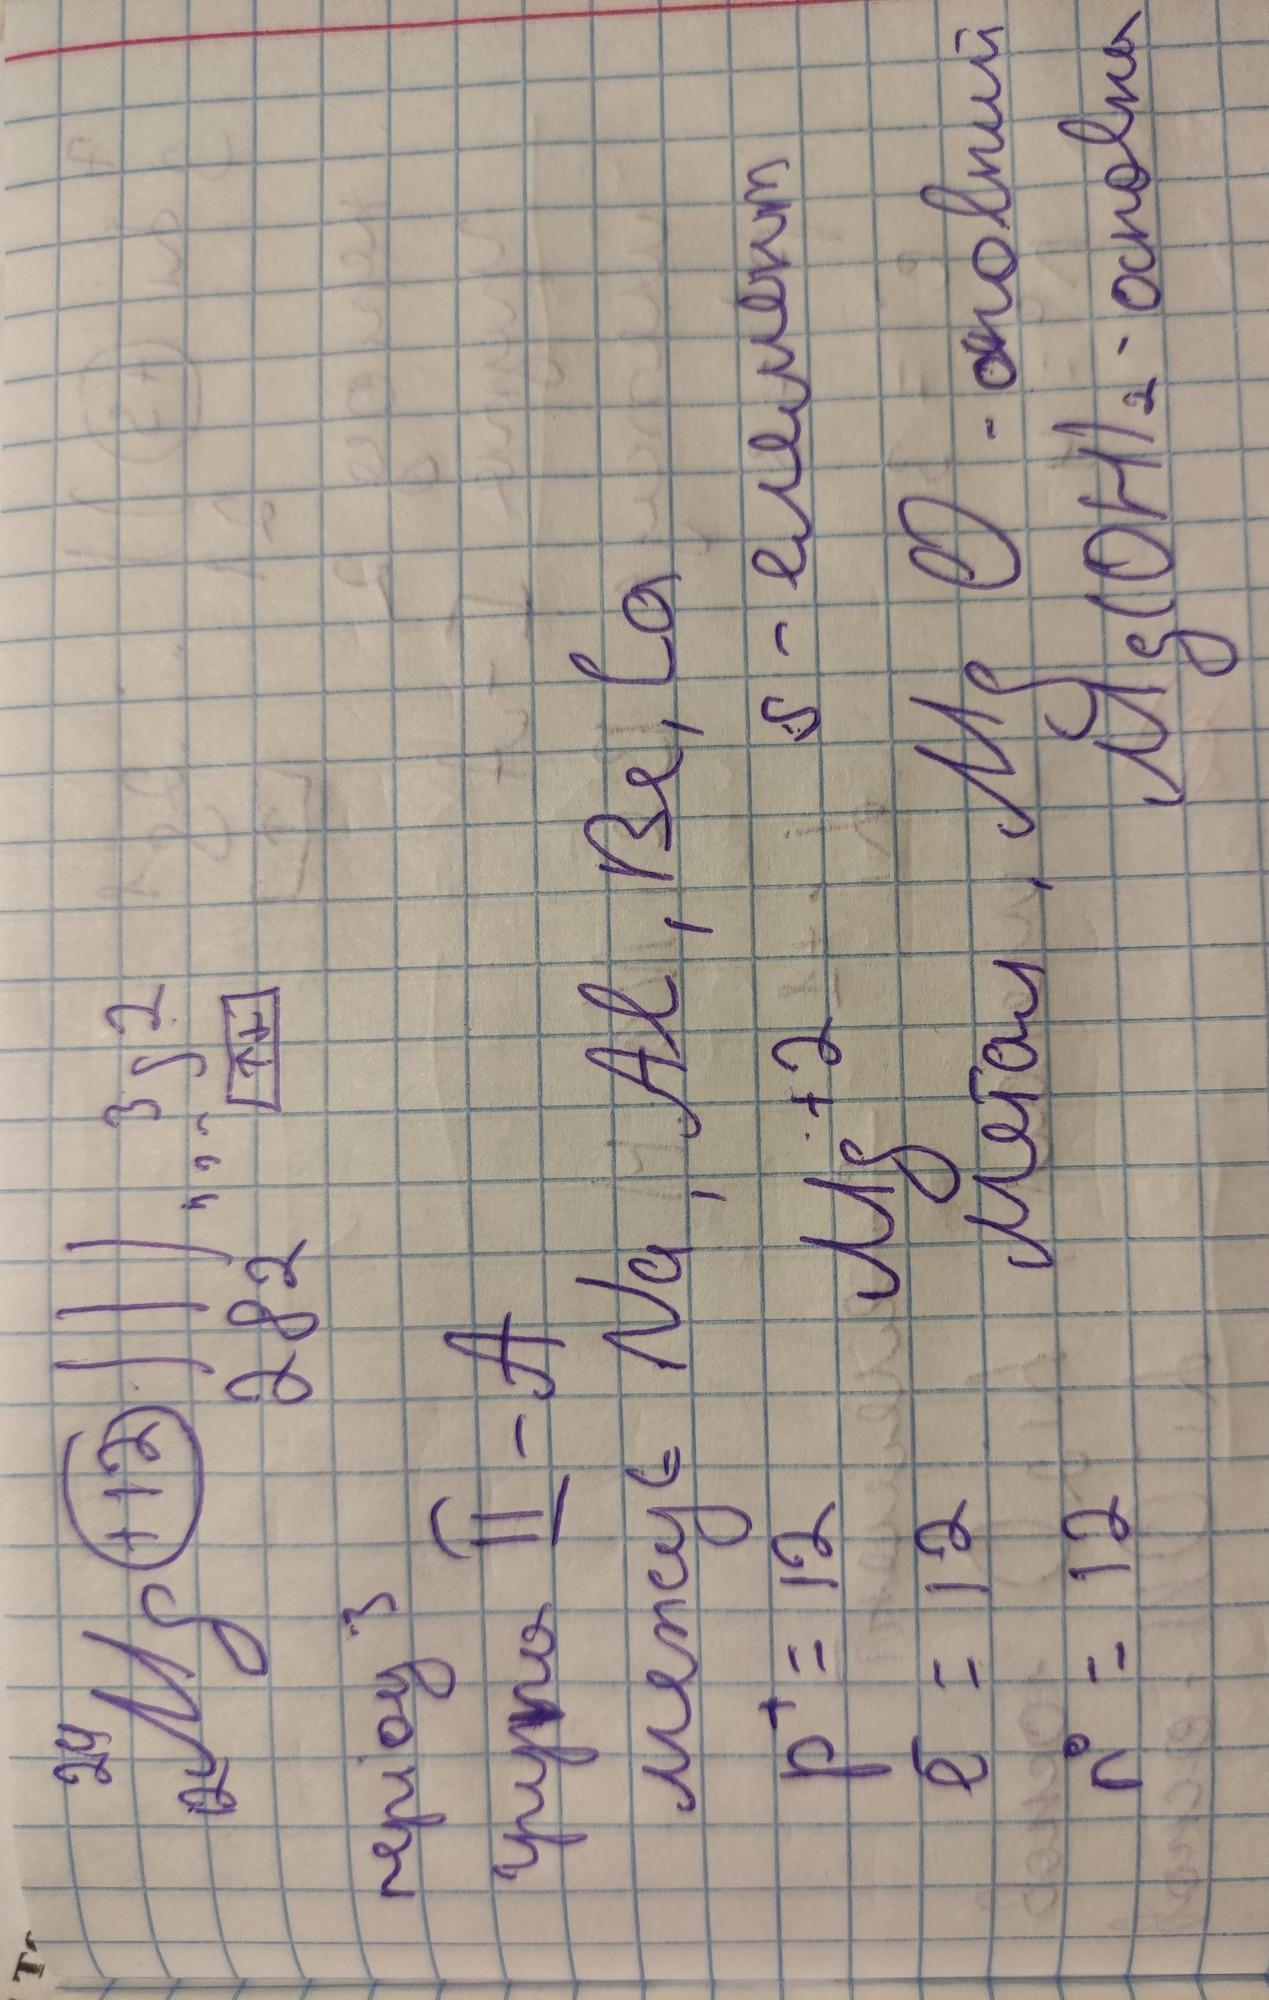 24 Mg +12 ))) ... 3s2
12 2 8 2 ↑↓
період 3
група II - A
менсує Na, Al, Be, Ca
p+ = 12 Mg +2 s - елемент
ē = 12 Метал, MgO - оновний
n° = 12 Mg(OH)2 - основна